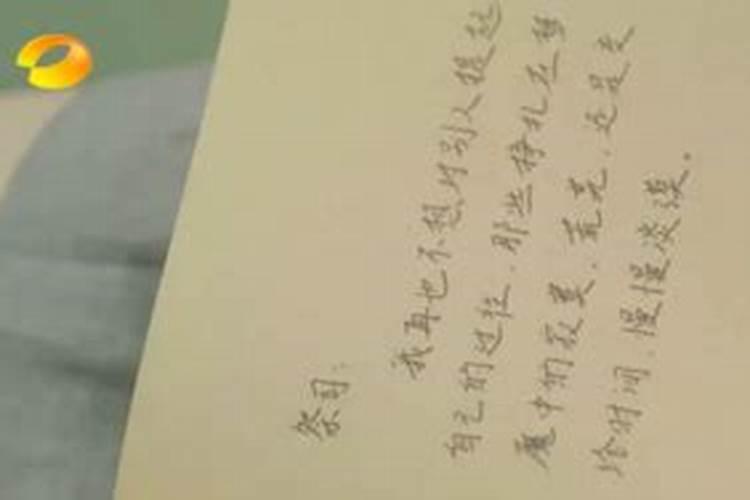 祭司:
我再也不想对别人提起
自己的过往,那些挣扎在梦
魇中的寂寞,荒芜,还是交
给时间,慢慢淡漠。